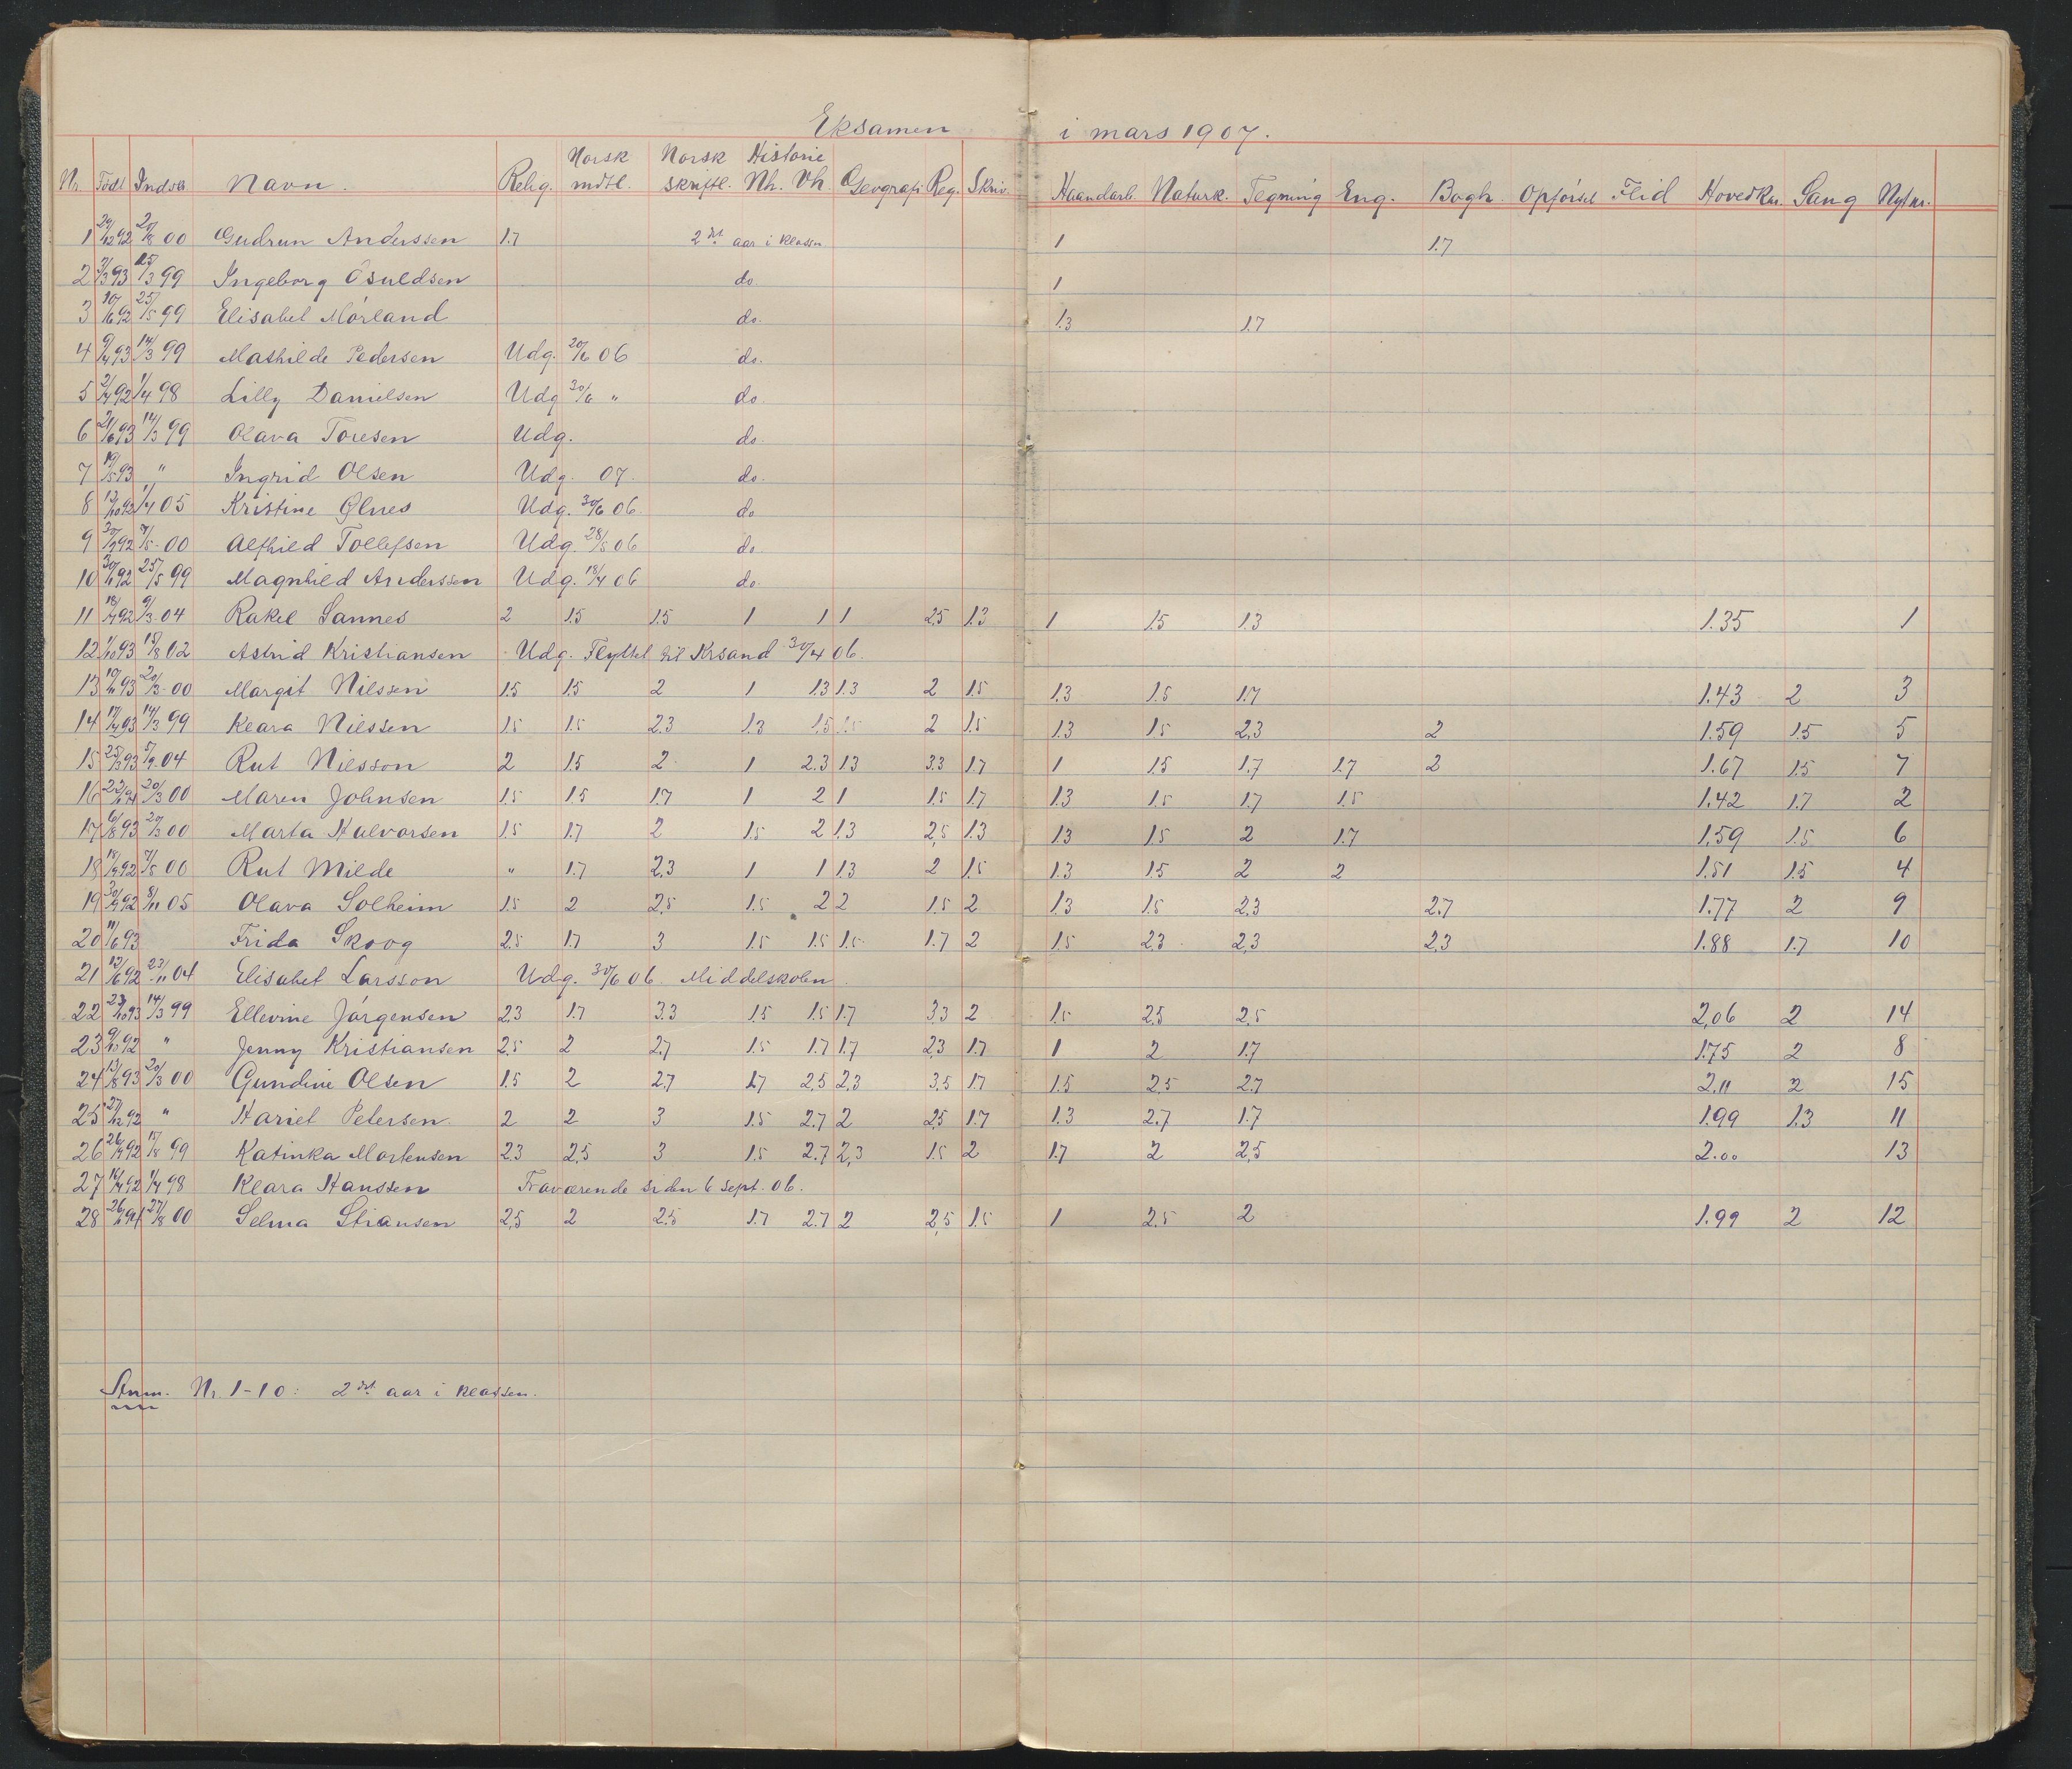 Eksamen i mars 1907.
Nr. Født Indsk. Navn. Relig. Norsk mdtl. Norsk skriftl. Historie Nh. Vh. Geografi Reg. Skriv. Haandarb. Naturk. Tegning Eng. Bogh. Opførsel Flid Hovedkar. Sang Nyt nr.
1 29/12 92 20/8 00 Gudrun Anderssen 1.7 2det aar i klassen 1 1.7
2 3/3 93 15/3 99 Ingeborg Osuldsen do 1
3 10/6 92 25/5 99 Elisabet Mørland do. 1.3 1.7
4 9/4 93 14/3 99 Mathilde Pedersen Udg. 20/6 06 do.
5 2/4 92 1/4 98 Lilly Danielsen Udg 30/6 " do.
6 21/6 93 14/3 99 Olava Toresen Udg. do.
7 19/5 93 " Ingrid Olsen Udg. 07. do.
8 13/10 92 1/4 05 Kristine Udg. 30/6 06. do
9 30/9 92 7/5-00 Alfhild Tollefsen Udg. 28/5 06 do
10 30/11 92 25/5 99 Magnhild Anderssen Udg. 18/4 06 do.
11 18/4 92 9/3-04 Rakel Sannes 2 1.5 1.5 1 1 1 2.5 1.3 1 1.5 1.3 1.35 1
12 1/10 93 15/8 02 Astrid Kristiansen Udg. Flyttet til Krsand 30/4 06.
13 10/11 93 20/3-00 Margit Nilssen 1.5 1.5 2 1 1.3 1.3 2 1.5 1.3 1.5 1.7 1.43 2 3
14 17/4 93 14/3 99 Klara Nilssen 1.5 1.5 2.3 1.3 1.5 1.5 2 1.5 1.3 1.5 2.3 2 1.59 1.5 5
15 25/3 93 5/9-04 Rut Nilsson 2 1.5 2 1 2.3 1.3 3.3 1.7 1 1.5 1.7 1.7 2 1.67 1.5 7
16 22/1 94 20/3 00 Maren Johnsen 1.5 1.5 1.7 1 2 1 1.5 1.7 1.3 1.5 1.7 1.5 1.42 1.7 2
17 6/8 93 20/3 00 Marta Halvorsen 1.5 1.7 2 1.5 2 1.3 2,5 1.3 1.3 1.5 2 1.7 1.59 1.5 6
18 18/9 92 7/5 00 Rut Milde " 1.7 2.3 1 1 1.3 2 1.5 1.3 1.5 2 2 1.51 1.5 4
19 30/9 92 8/11 05 Olava Solheim 1.5 2 2.5 1.5 2 2 1.5 2 1.3 1.5 2.3 2.7 1.77 2 9
20 11/6 93 Frida Skoog 2.5 1.7 3 1.5 1.5 1.5 1.7 2 1.5 2.3 2.3 2.3 1.88 1.7 10
21 12/6 92 23/11 04 Elisabet Larsson Udg. 30/6 06. Middelskolen.
22 23/10 93 14/3 99 Ellevine Jørgensen 2.3 1.7 3.3 1.5 1.5 1.7 3.3 2 1.5 2.5 2.5 2,06 2 14
23 9/10 92 " Jenny Kristiansen 2.5 2 2.7 1.5 1.7 1.7 2.3 1.7 1 2 1.7 1.75 2 8
24 13/8 93 20/3 00 Gundine Olsen 1.5 2 2.7 1.7 2,5 2,3 3,5 1.7 1.5 2.5 2.7 2.11 2 15
25 27/12 92 " Hariet Petersen. 2 2 3 1.5 2.7 2 2.5 1.7 1.3 2.7 1.7 1.99 1.3 11
26 26/9 92 17/8 99 Katinka Mortensen 2.3 2,5 3 1.5 2.7 2,3 1.5 2 1.7 2 2,5 2.00 13
27 16/4 92 1/4 98 Klara Hanssen Fraværende siden 6 sept. 06.
28 26/1 94 27/8 00 Selma Stiansen 2,5 2 2.5 1.7 2.7 2 2,5 1.5 1 2.5 2 1.99 2 12
Anm. Nr. 1-10: 2det aar i klassen.